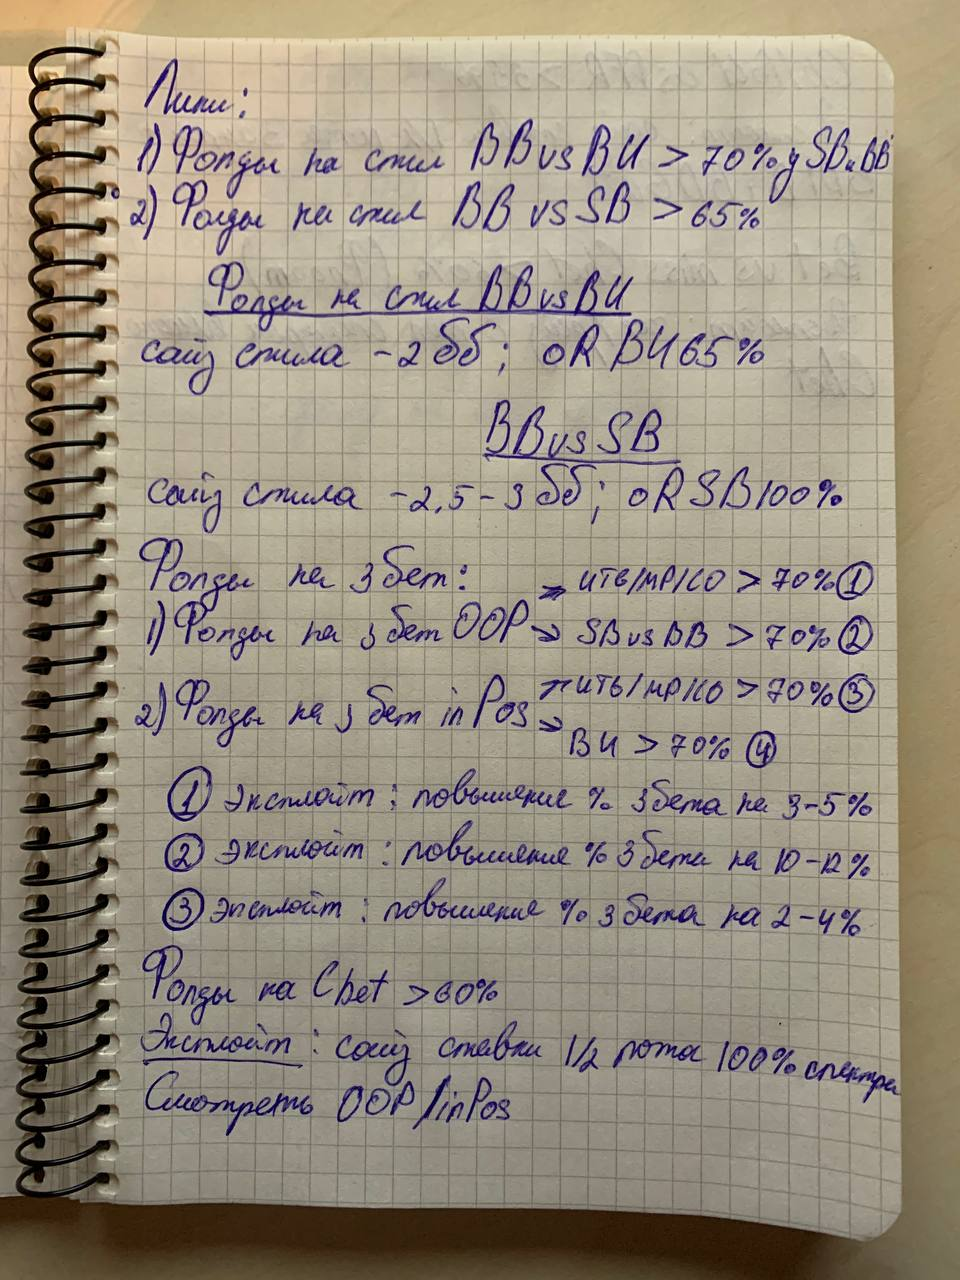 Лики:
1) Фолды на стил BB vs BU > 70% у SB и BB
2) Фолды на стил BB vs SB > 65%
Фолды на стил BB vs BU
сайз стила - 2 бб; oR BU 65%
BB vs SB
сайз стила - 2,5 - 3 бб; oR SB 100%
Фолды на 3 бет: → UTG/MP/CO > 70% ①
1) Фолды на 3 бет OOP → SB vs BB > 70% ②
2) Фолды на 3 бет in Pos → UTG/MP/CO > 70% ③
→ BU > 70% ④
① Эксплойт: повышение % 3бета на 3-5%
② Эксплойт: повышение % 3бета на 10-12%
③ Эксплойт: повышение % 3бета на 2-4%
Фолды на Cbet > 60%
Эксплойт: сайз ставки 1/2 пота 100% спектра
Смотреть OOP/inPos